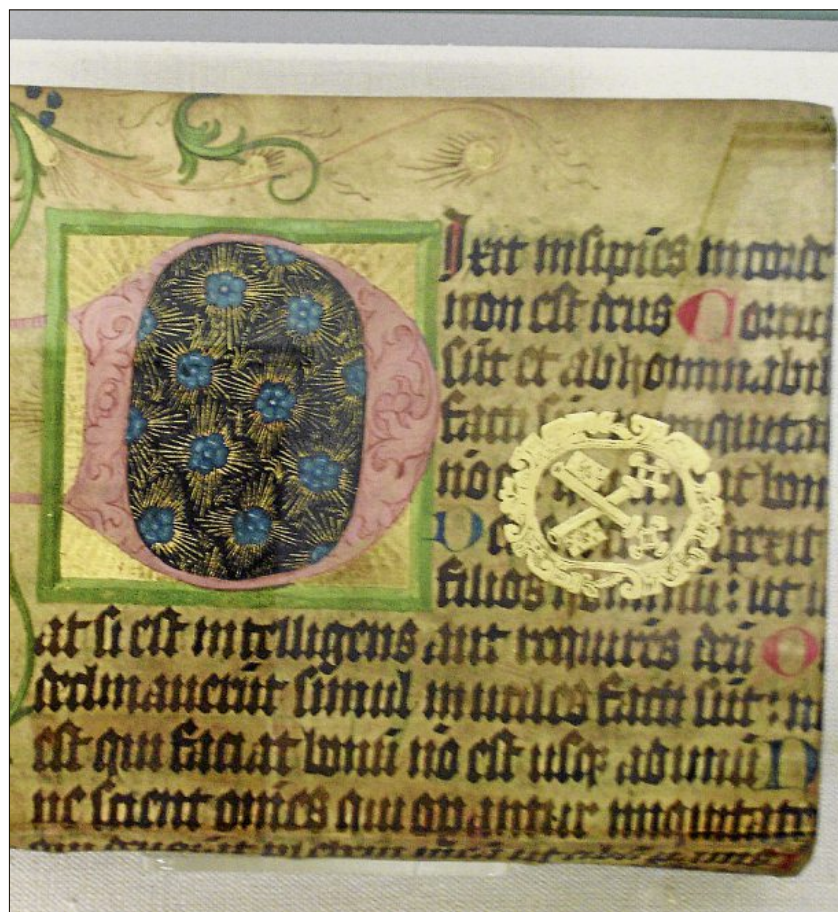 Dixit insipiēs in corde
non est deus Corru
sūt et abhominabil
facti iniquita
nō bon
D pexit
filios hominū: ut u
at si est intelligens aut requirēs deū O
declinauerūt simul inutiles facti sūt: n
est qui faciat bonū nō est usq; ad unū N
ne scient omēs qui opantur iniquitatē